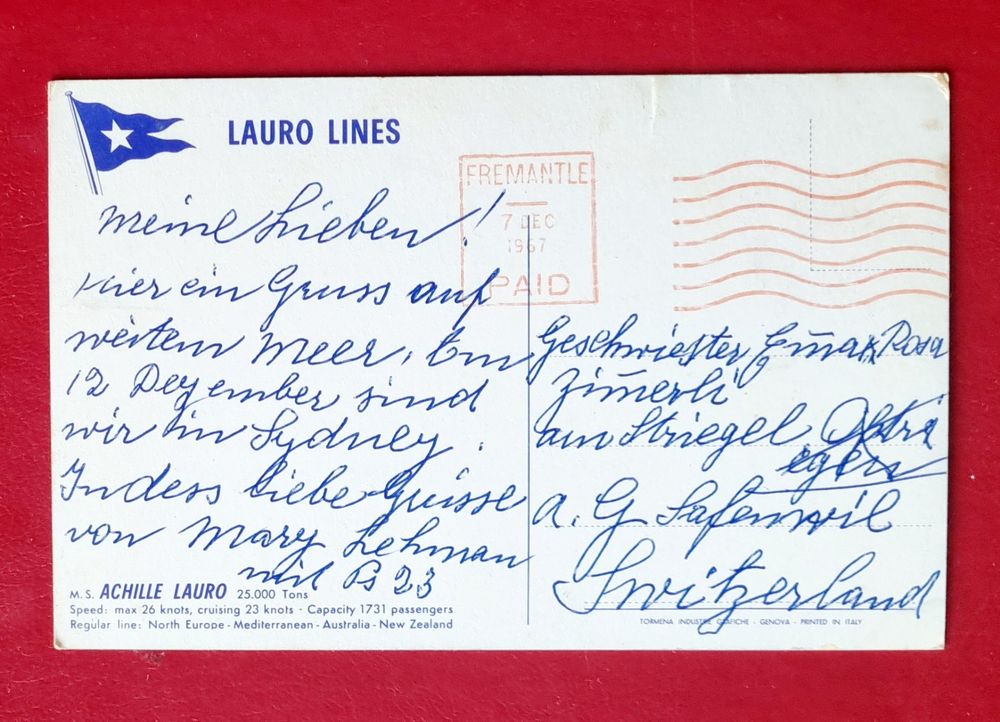 LAURO LINES
FREMANTLE
7 DEC
1967
PAID
Meine Lieben!
Hier ein Gruss auf
weitem Meer. Am
12 Dezember sind
wir in Sydney.
Indess liebe Grüsse
von Mary Lehman
mit B 23
Geschwister Em̄a Rosa
Zim̄erli
am Striegel
a. G Safenwil
Switzerland
M.S. ACHILLE LAURO 25.000 Tons
Speed: max 26 knots, cruising 23 knots - Capacity 1731 passengers
Regular line: North Europe - Mediterranean - Australia - New Zealand
TORMENA INDUSTRIE GRAFICHE - GENOVA - PRINTED IN ITALY